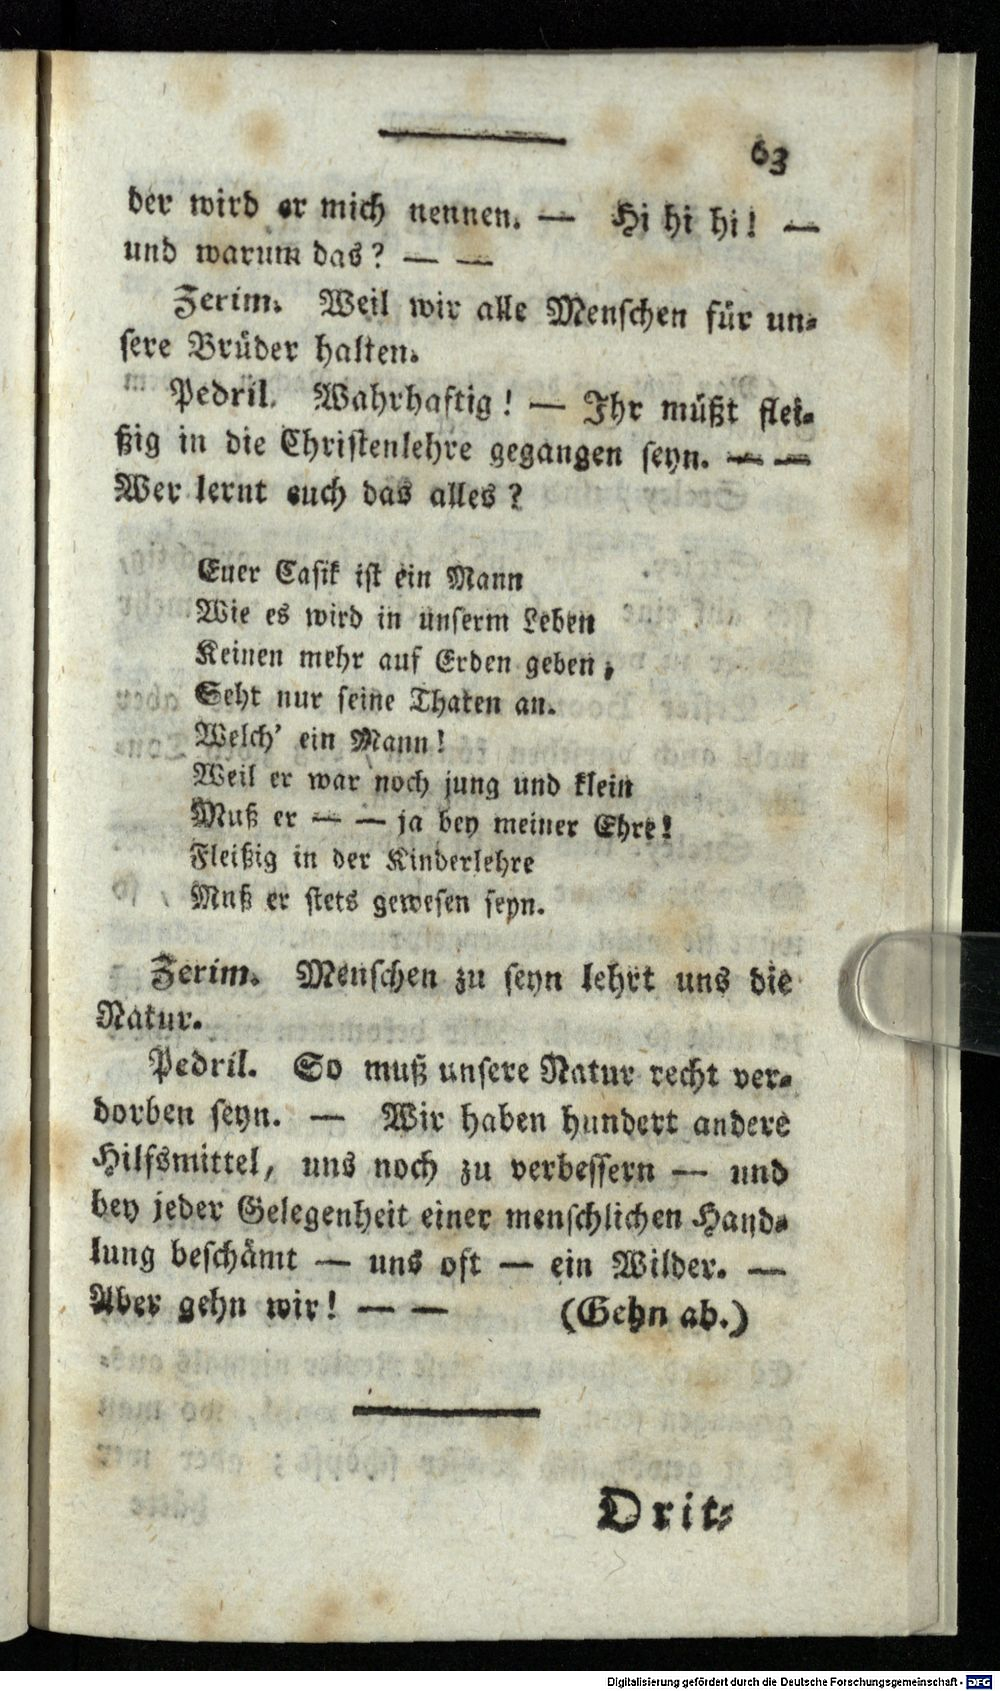 63
der wird er mich nennen. — Hi hi hi! —
und warum das? — —
Zerim. Weil wir alle Menschen für un-
sere Brüder halten.
Pedril. Wahrhaftig! — Ihr müßt flei-
ßig in die Christenlehre gegangen seyn. — —
Wer lernt euch das alles?
Euer Casik ist ein Mann
Wie es wird in unserm Leben
Keinen mehr auf Erden geben,
Seht nur seine Thaten an.
Welch' ein Mann!
Weil er war noch jung und klein
Muß er — — ja bey meiner Ehre!
Fleißig in der Kinderlehre
Muß er stets gewesen seyn.
Zerim. Menschen zu seyn lehrt uns die
Natur.
Pedril. So muß unsere Natur recht ver-
dorben seyn. — Wir haben hundert andere
Hilfsmittel, uns noch zu verbessern — und
bey jeder Gelegenheit einer menschlichen Hand-
lung beschämt — uns oft — ein Wilder. —
Aber gehn wir! — — (Gehn ab.)
Drit-
Digitalisierung gefördert durch die Deutsche Forschungsgemeinschaft - DFG